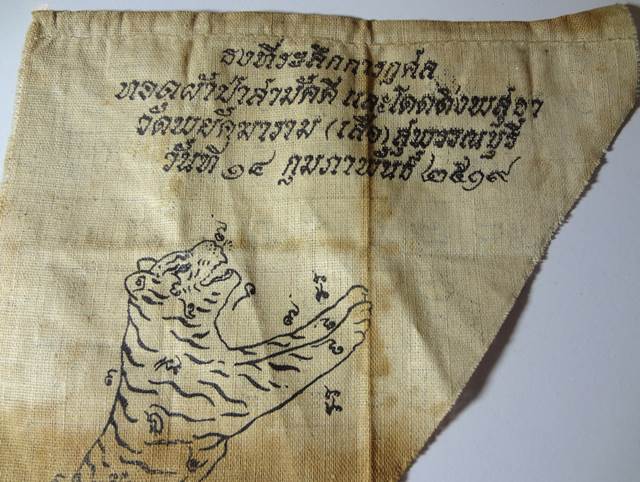 ธงที่ระลึกการกุศล
ทอดผ้าป่าสามัคคี และโดดดิ่งพสุธา
วัดพยัคฆาราม (เสือ) สุพรรณบุรี
วันที่ ๑๔ กุมภาพันธ์ ๒๕๑๙